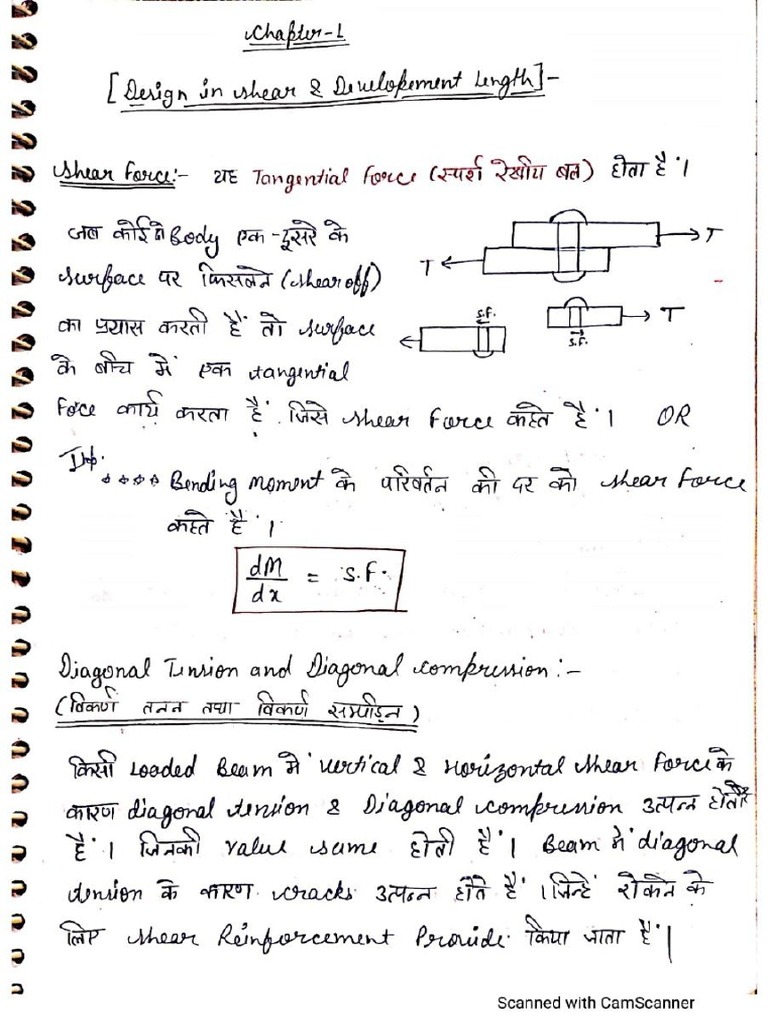 Chapter-1
[Design in shear & Developement Length]-
Shear Force:- यह Tangential Force (स्पर्श रेखीय बल) होता है।
जब कोई Body एक-दूसरे के
surface पर फिसलने (shear off)
का प्रयास करती हैं तो surface
के बीच में एक tangential
Force कार्य करता है जिसे shear Force कहते हैं। OR
T
T
S.F.
S.F.
T
Imp. Bending Moment के परिवर्तन की दर को shear Force
कहते हैं।
dM/dx = S.F.
Diagonal Tension and Diagonal compression:-
(विकर्ण तनन तथा विकर्ण सम्पीड़न)
किसी Loaded Beam में vertical & Horizontal shear Force के
कारण diagonal tension & Diagonal compression उत्पन्न होती
हैं। जिनकी value same होती है। Beam में diagonal
tension के कारण cracks उत्पन्न होते हैं। जिन्हें रोकने के
लिए shear Reinforcement Provide किया जाता है।
Scanned with CamScanner